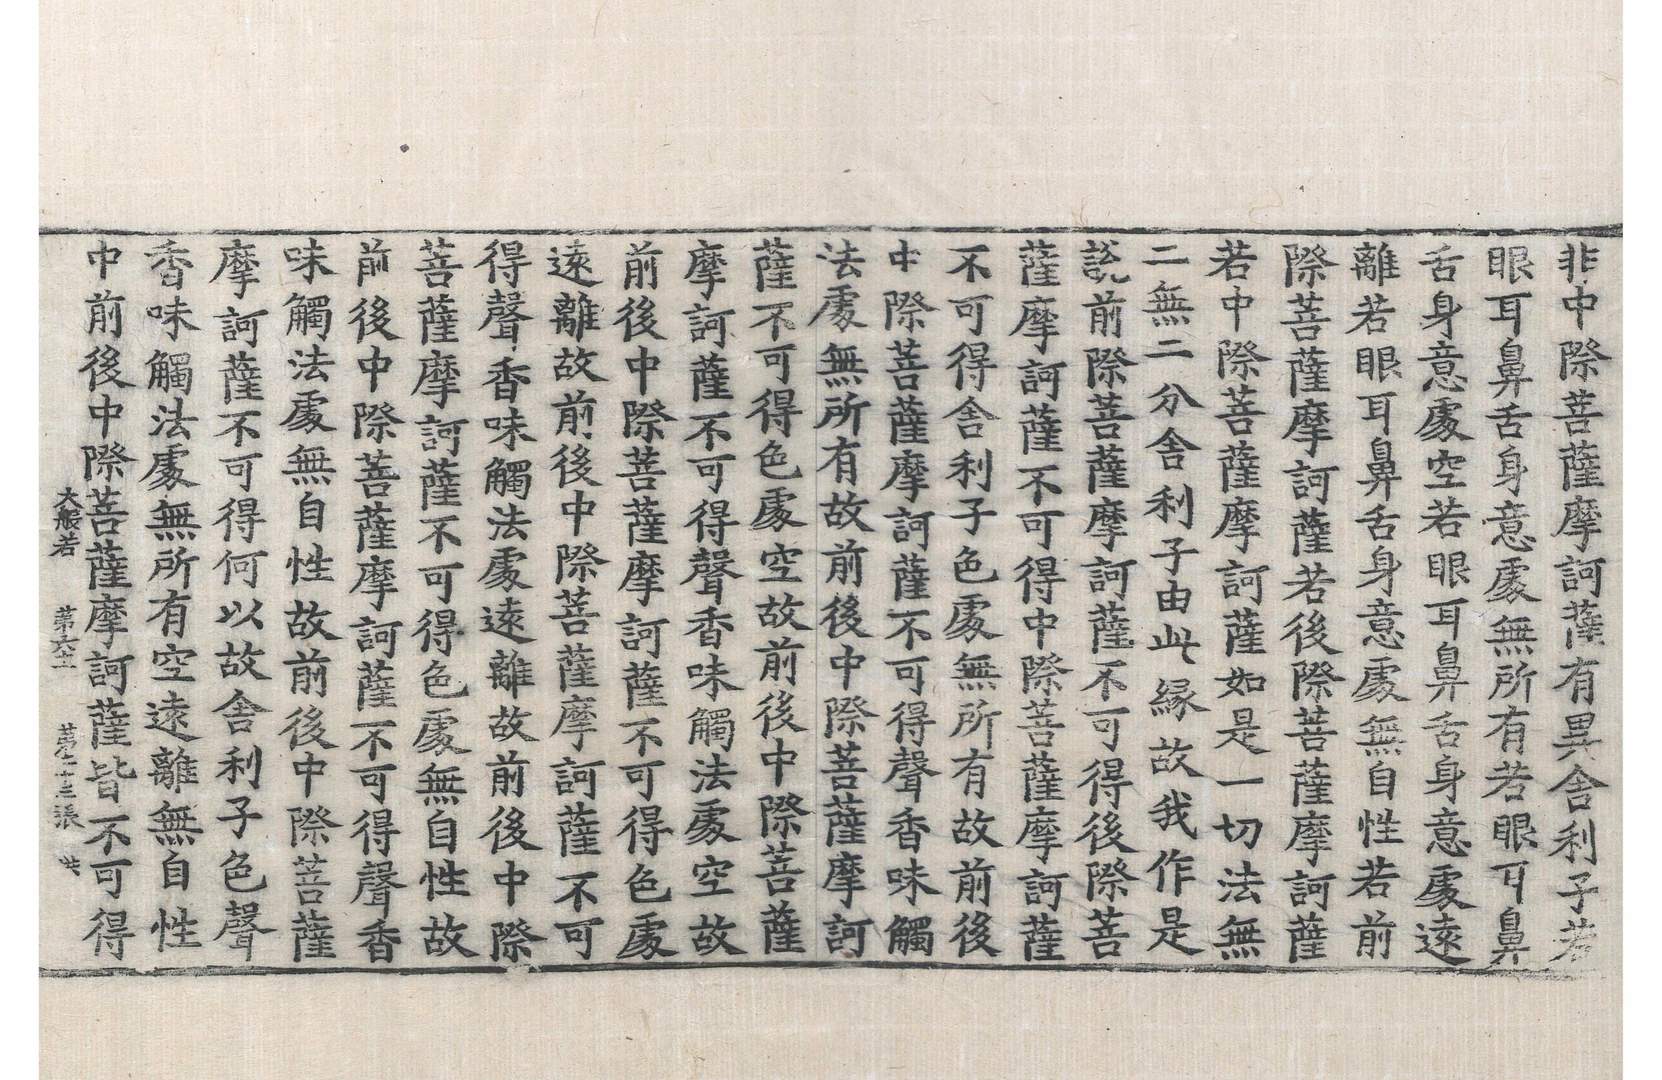 非中際菩薩摩訶薩有異舍利子若
眼耳鼻舌身意處無所有若眼耳鼻
舌身意處空若眼耳鼻舌身意處遠
離若眼耳鼻舌身意處無自性若前
際菩薩摩訶薩若後際菩薩摩訶薩
若中際菩薩摩訶薩如是一切法無
二無二分舍利子由此緣故我作是
說前際菩薩摩訶薩不可得後際菩
薩摩訶薩不可得中際菩薩摩訶薩
不可得舍利子色處無所有故前後
中際菩薩摩訶薩不可得聲香味觸
法處無所有故前後中際菩薩摩訶
薩不可得色處空故前後中際菩薩
摩訶薩不可得聲香味觸法處空故
前後中際菩薩摩訶薩不可得色處
遠離故前後中際菩薩摩訶薩不可
得聲香味觸法處遠離故前後中際
菩薩摩訶薩不可得色處無自性故
前後中際菩薩摩訶薩不可得聲香
味觸法處無自性故前後中際菩薩
摩訶薩不可得何以故舍利子色聲
香味觸法處無所有空遠離無自性
中前後中際菩薩摩訶薩皆不可得
大般若 第六十 第二十三張